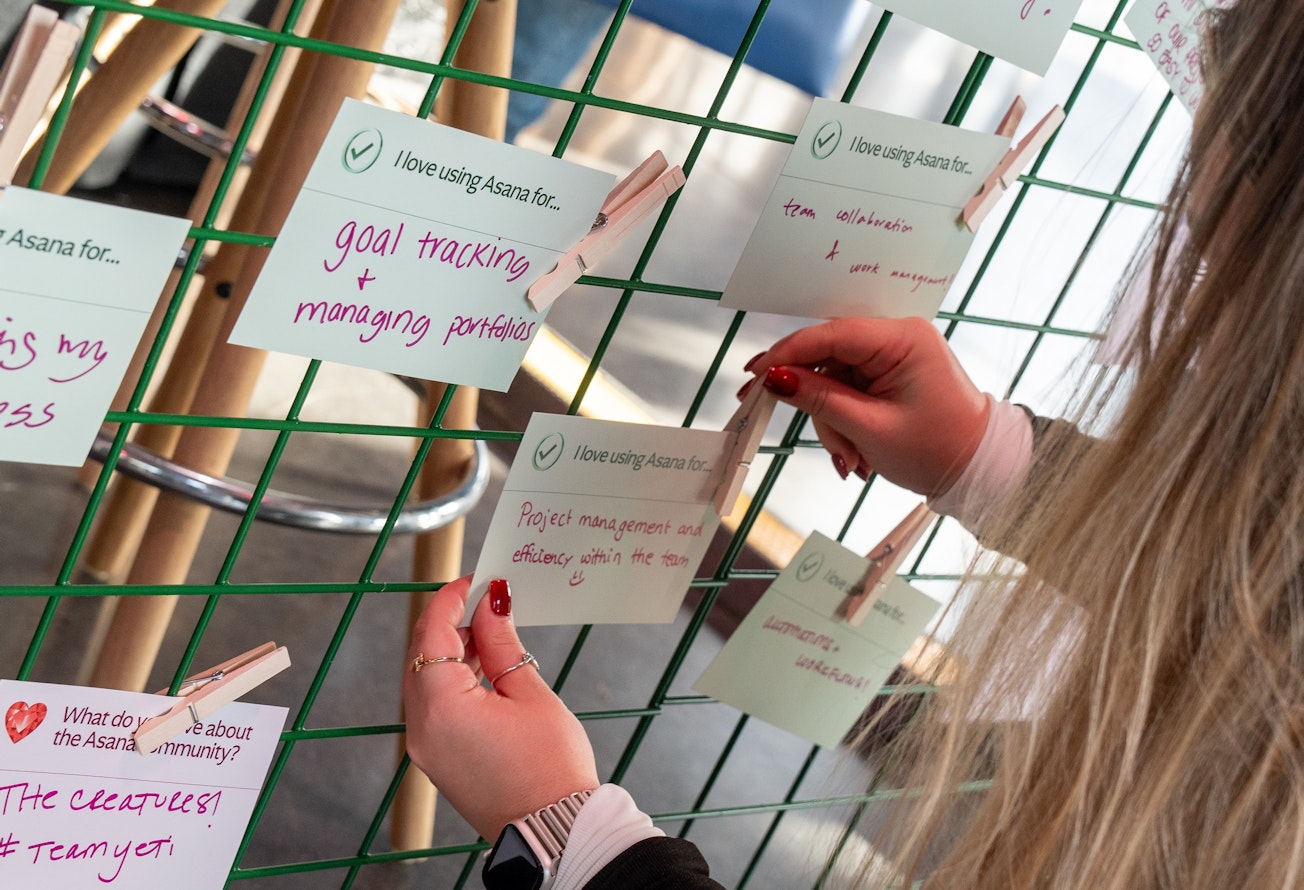 OF OUR
SO EASY
I love using Asana for...
goal tracking
+
managing portfolios
I love using Asana for...
team collaboration
&
work management!
Asana for...
my
I love using Asana for...
Project management and
efficiency within the team
I love
ana for...
WORKFLOWS!
What do
ve about
the Asana
mmunity?
THE CREATURES!
# Team yeti